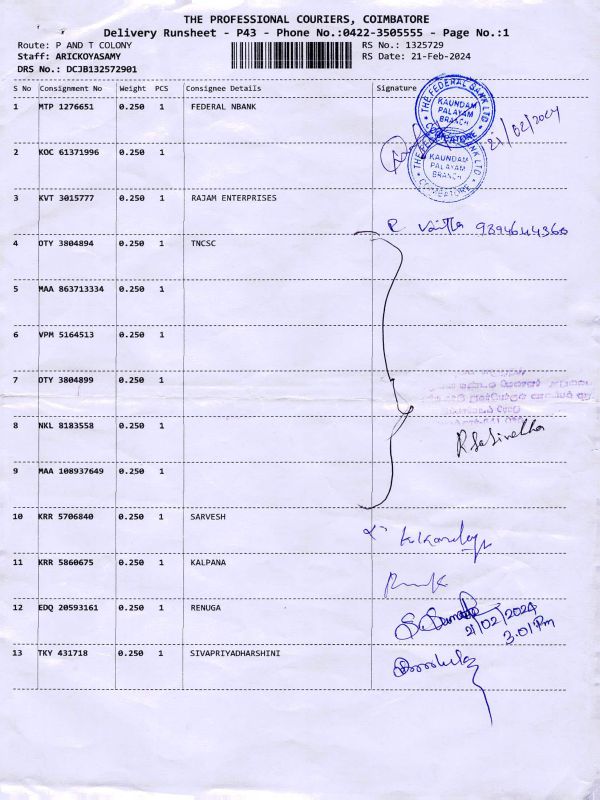 THE PROFESSIONAL COURIERS, COIMBATORE
Delivery Runsheet - P43 - Phone No.:0422-3505555 - Page No.:1
Route: P AND T COLONY
RS No.: 1325729
Staff: ARICKOYASAMY
RS Date: 21-Feb-2024
DRS No.: DCJB132572901
S No Consignment No Weight PCS Consignee Details Signature
1 MTP 1276651 0.250 1 FEDERAL NBANK
THE FEDERAL BANK LTD
KAUNDAM
PALAYAM
BRANCH
COIMBATORE
21/02/2024
2 KOC 61371996 0.250 1
KAUNDAM
PALAYAM
BRANCH
COIMBATORE
3 KVT 3015777 0.250 1 RAJAM ENTERPRISES
R
4 OTY 3804894 0.250 1 TNCSC
5 MAA 863713334 0.250 1
6 VPM 5164513 0.250 1
7 OTY 3804899 0.250 1
8 NKL 8183558 0.250 1
9 MAA 108937649 0.250 1
10 KRR 5706840 0.250 1 SARVESH
11 KRR 5860675 0.250 1 KALPANA
12 EDQ 20593161 0.250 1 RENUGA
21/02/2024
3.01 Pm
13 TKY 431718 0.250 1 SIVAPRIYADHARSHINI